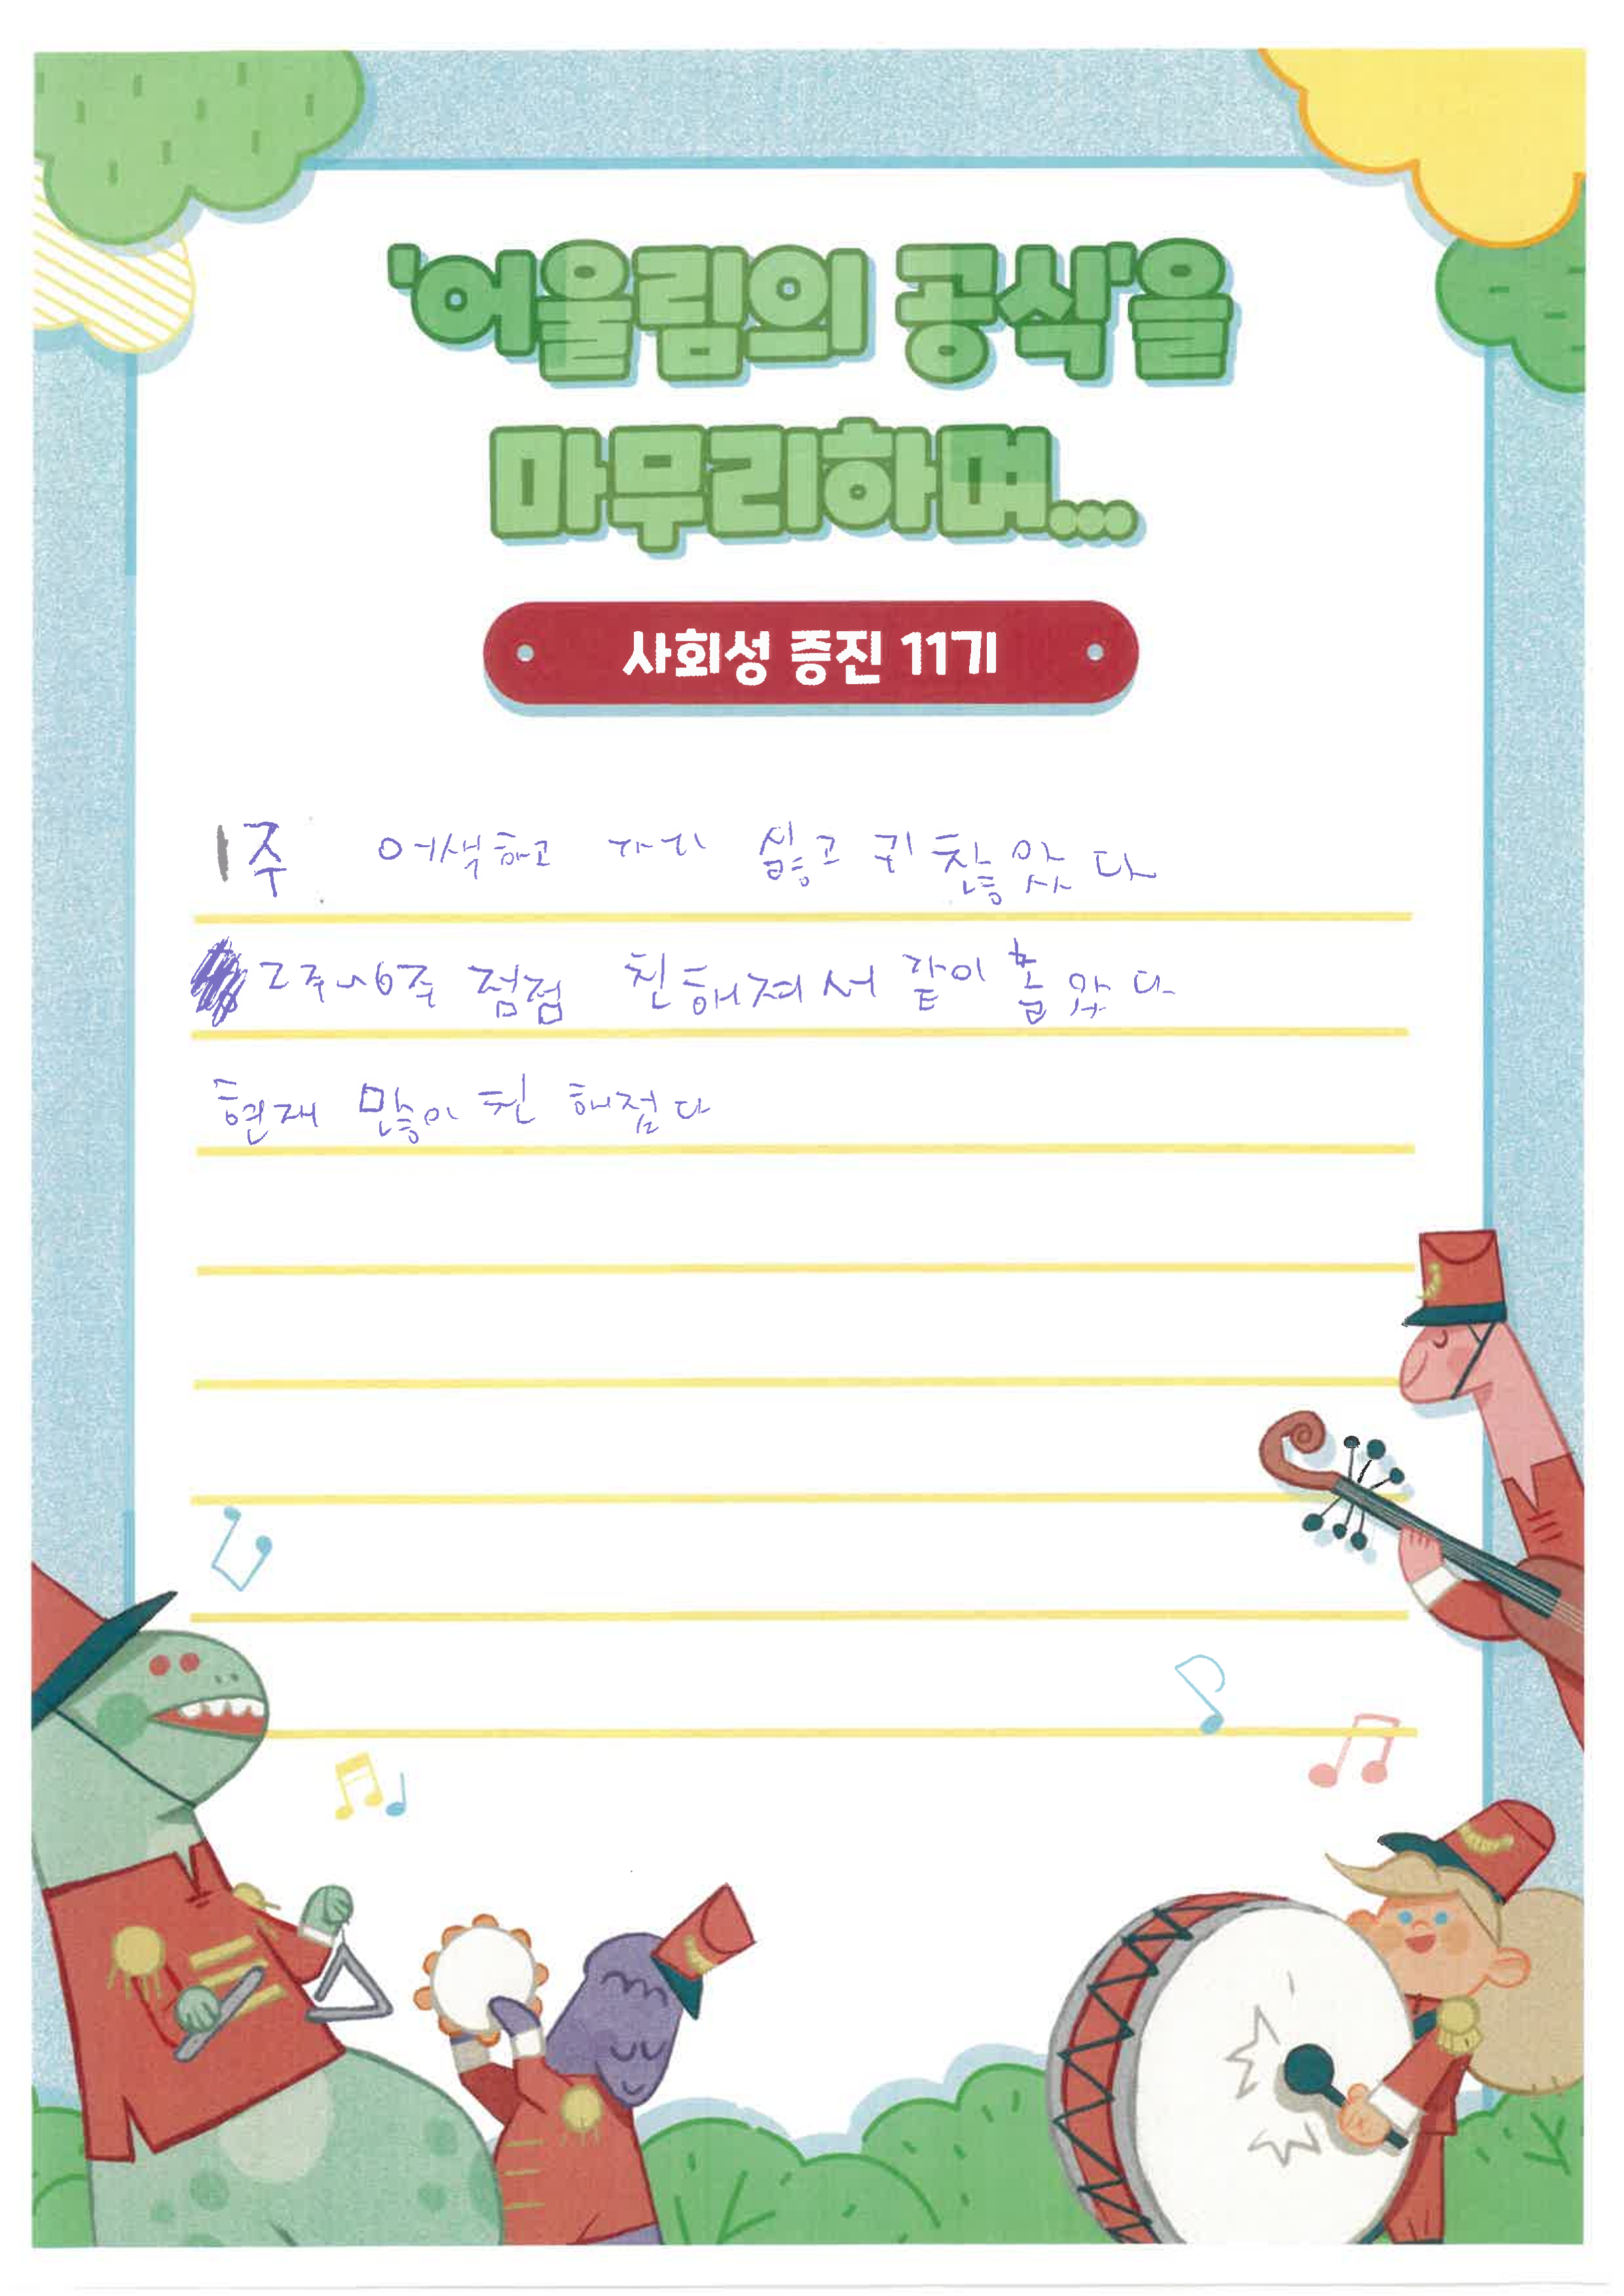 '어울림의 공식'을
마무리하며...
사회성 증진 11기
1주 어색하고 가기 싫고 귀찮았다
2주~6주 점점 친해져서 같이 놀았다
현재 많이 친해졌다